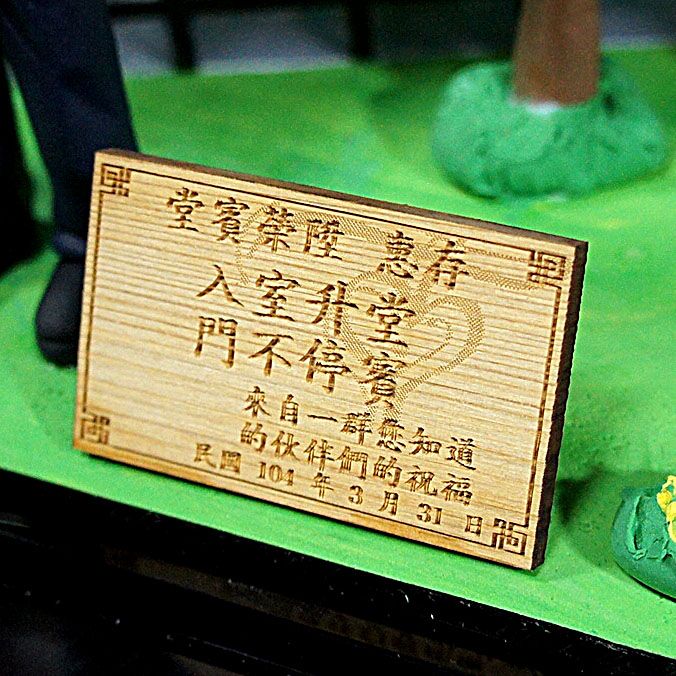 堂賓榮陞 惠存
入室升堂
門不停賓
來自一群您知道
的伙伴們的祝福
民國 104 年 3 月 31 日